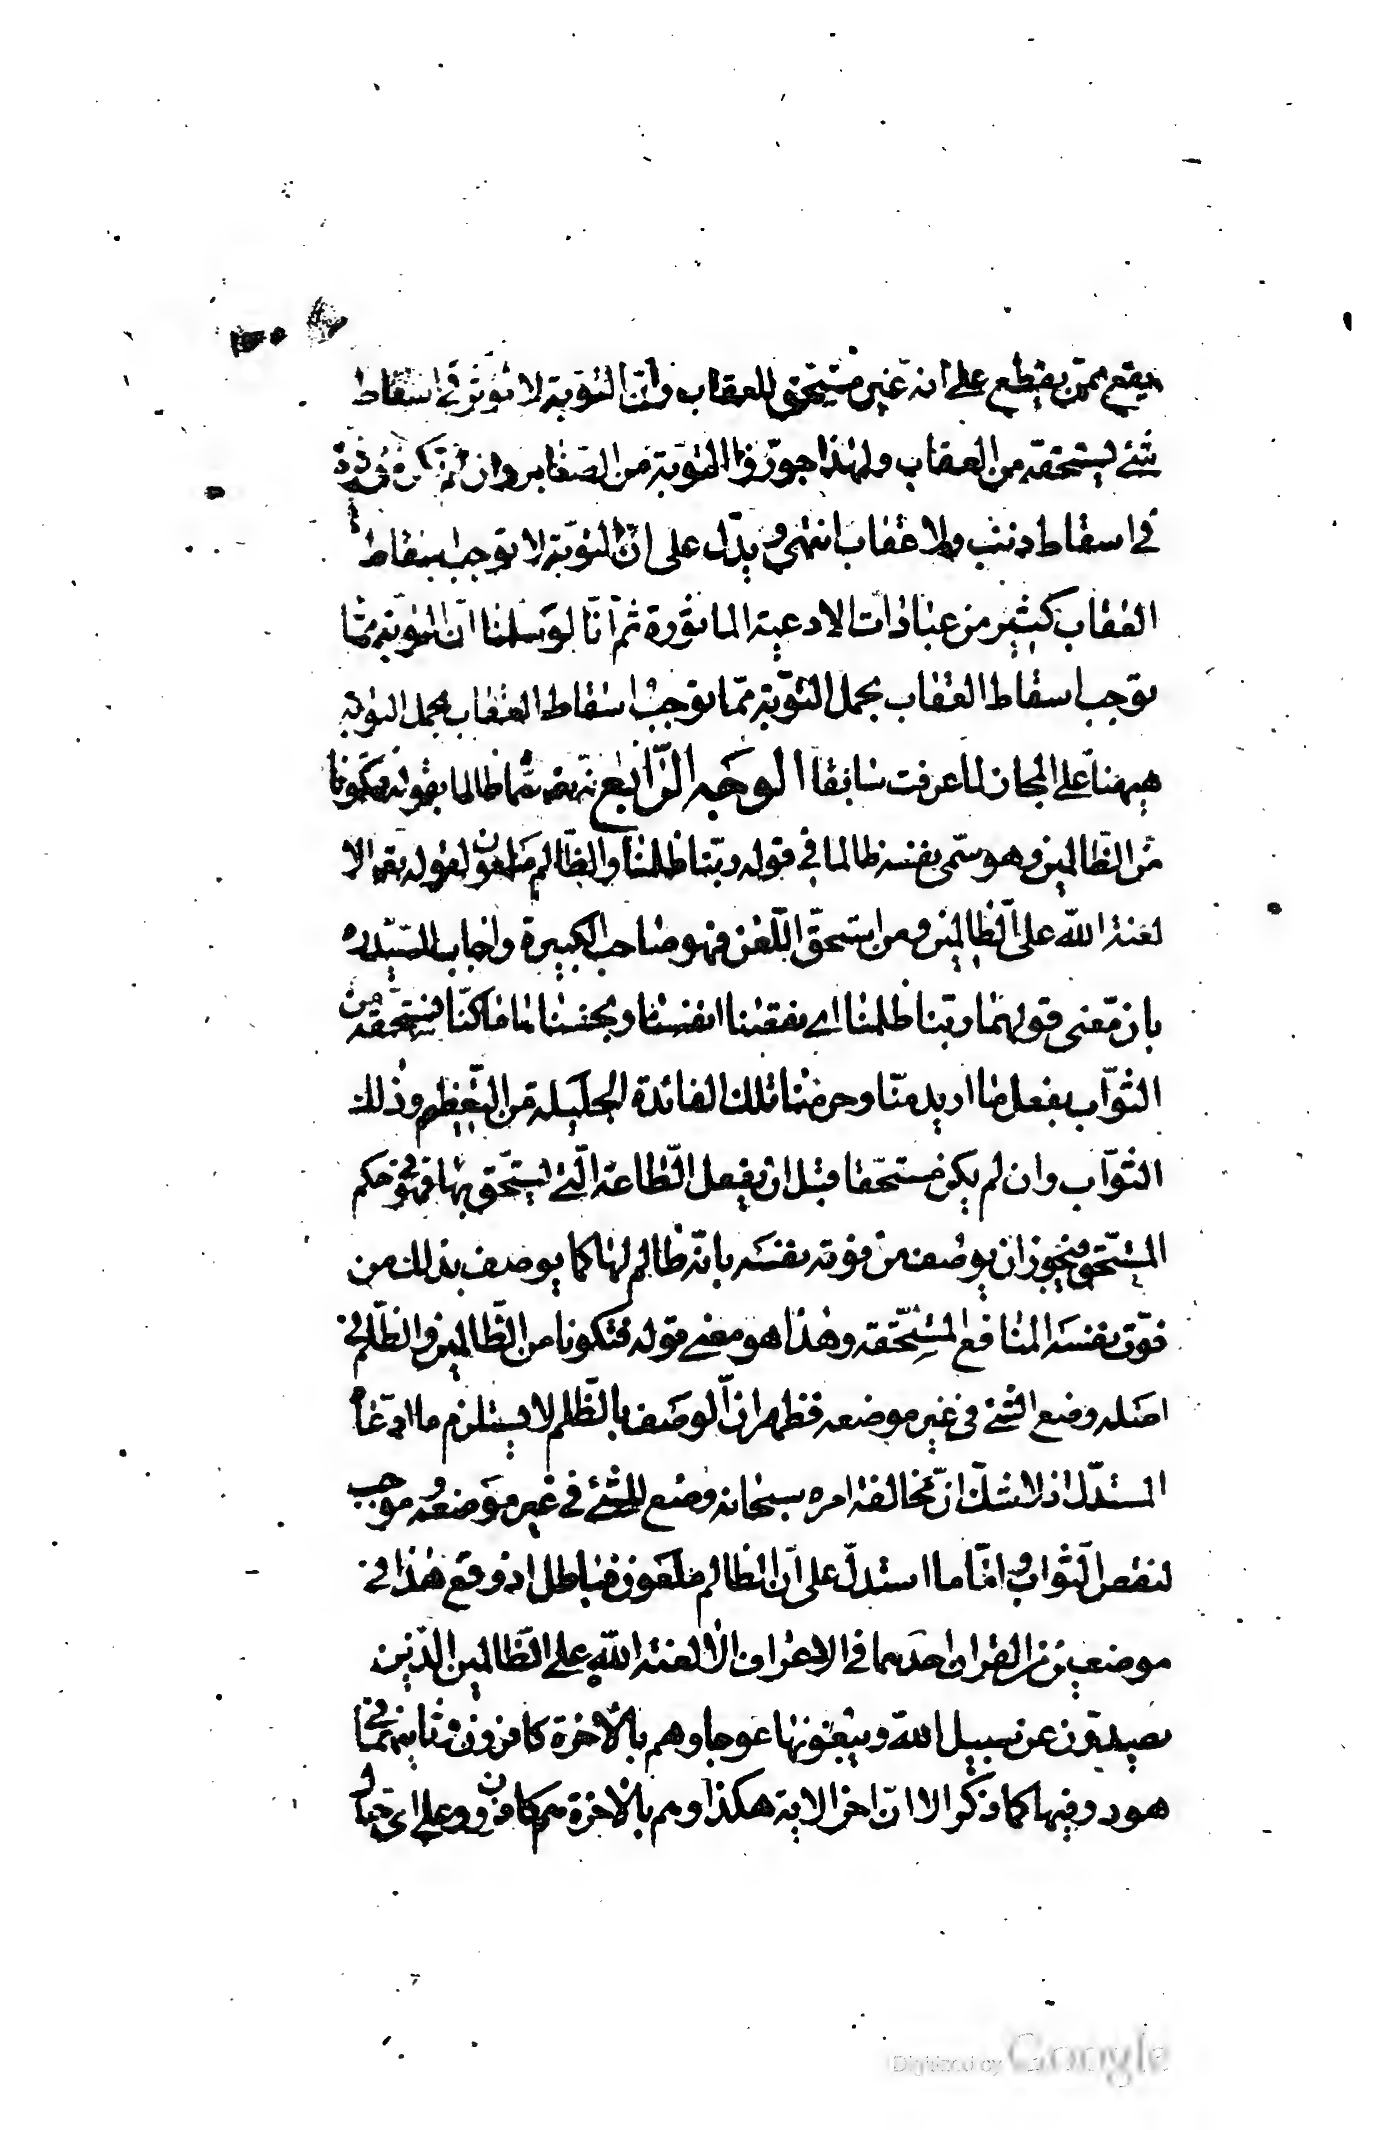 يقع ممن يقطع على انه غير مستحق للعقاب وان التوبة لا تؤثر في اسقاط
شئ يستحقه من العقاب ولهذا جوزوا التوبة من الصغاير وان لم تكن مؤثرة
في اسقاط ذنب ولا عقاب انتهى ويدل على ان التوبة لا توجب اسقاط
العقاب كثير من عبارات الادعية الماثورة ثم انا لو سلمنا ان التوبة مما
توجب اسقاط العقاب يحمل التوبة مما توجب اسقاط العقاب يحمل التوبة
ههنا على المجاز لما عرفت سابقا الوجه الرابع انه تعه سماه ظالما بقوله فتكونا
من الظالمين وهو سمى نفسه ظالما في قوله ربنا ظلمنا والظالم ملعون لقوله تعه الا
لعنة الله على الظالمين ومن استحق اللعن فهو صاحب الكبيرة واجاب السيد ره
بان معنى قولهما ربنا ظلمنا اي نقصنا انفسنا وبخسنا ما كنا نستحقه من
الثواب بفعل ما اريد منا وحرمنا تلك الفائدة الجليله من التعظيم وذلك
الثواب وان لم يكن مستحقا قبل ان يفعل الطاعة التي يستحق بها فهو في حكم
المستحق فيجوز ان يوصف من فوته نفسه بانه ظالم لها كما يوصف بذلك من
فوت نفسه المنافع المستحقه وهذا هو معنى قوله فتكونا من الظالمين والظلم في
اصله وضع الشئ في غير موضعه فظهر ان الوصف بالظلم لا يستلزم ما ادعاه
المستدل اذ لا شك ان مخالفة امره سبحانه وضع للشئ في غير موضعه وموجب
لنقص الثواب واما ما استدل على ان الظالم ملعون فباطل اذ وقع هذا في
موضعين من القران احدهما في الاعراف الا لعنة الله على الظالمين الذين
يصدون عن سبيل الله ويبغونها عوجا وهم بالاخرة كافرون وثانيهما في
هود وفيها كما ذكر الا ان اخر الاية هكذا وهم بالاخرة هم كافرون وعلى اي حال